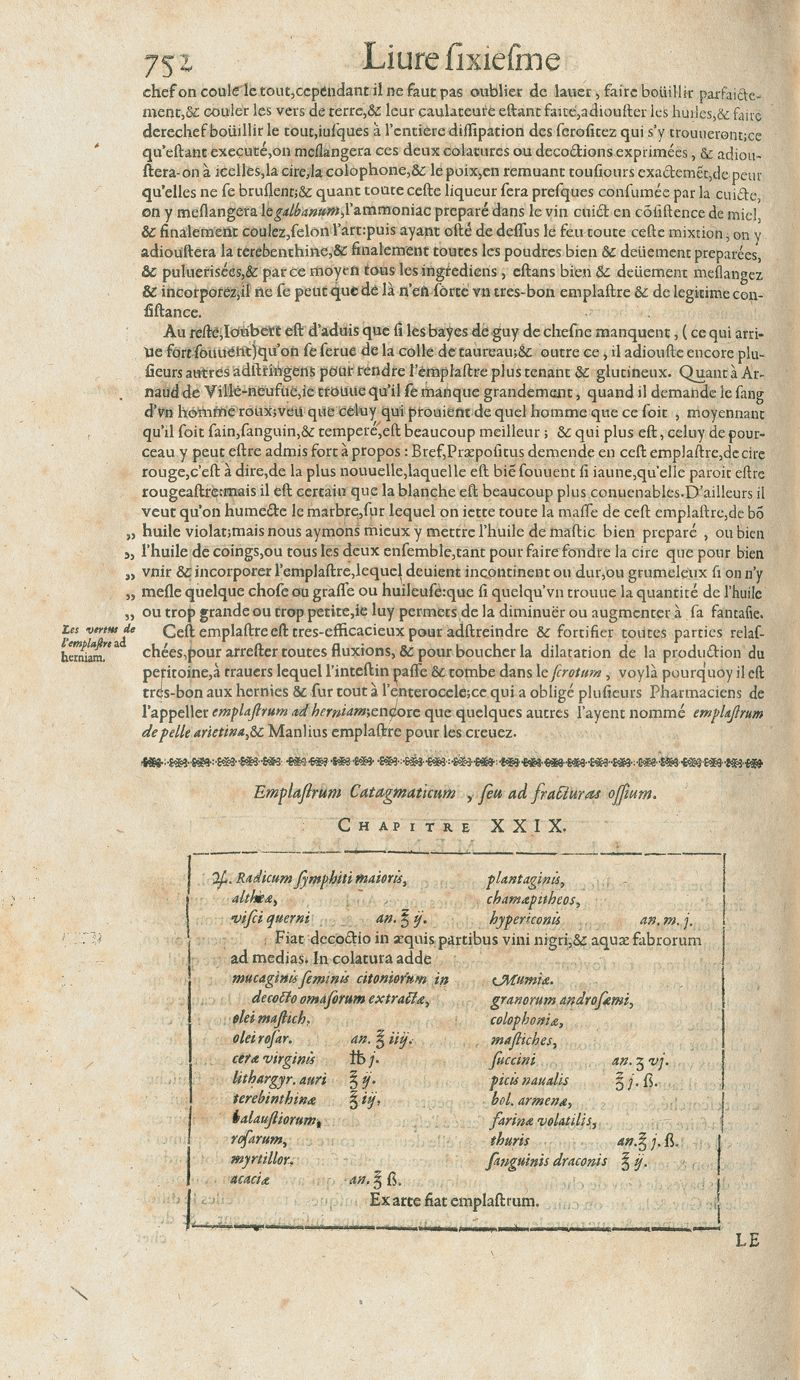 752 Liure ſixieſme
chef on coule le tout, cependant il ne faut pas oublier de lauer, faire boüillir parfaicte-
ment, & couler les vers de terre, & leur caulateure eſtant faite, adiouſter les huiles, & faire
derechef boüillir le tout, iuſques à l'entiere diſſipation des ſeroſitez qui s'y trouueront; ce
qu'eſtant executé, on meſlangera ces deux colatures ou decoctions exprimées, & adiou-
ſtera-on à icelles, la cire, la colophone, & le poix, en remuant touſiours exactemēt, de peur
qu'elles ne ſe bruſlent; & quant toute ceſte liqueur ſera preſques conſumée par la cuicte,
on y meſlangera le galbanum, l'ammoniac preparé dans le vin cuict en cōſiſtence de miel,
& finalement coulez, ſelon l'art: puis ayant oſté de deſſus le feu toute ceſte mixtion, on y
adiouſtera la terebenthine, & finalement toutes les poudres bien & deüement preparées,
& puluerisées, & par ce moyen tous les ingrediens, eſtans bien & deüement meſlangez
& incorporez, il ne ſe peut que de là n'en ſorte vn tres-bon emplaſtre & de legitime con-
ſiſtance.
Au reſte, Ioubert eſt d'aduis que ſi les bayes de guy de cheſne manquent, (ce qui arri-
ue fort ſouuent) qu'on ſe ſerue de la colle de taureau; & outre ce, il adiouſte encore plu-
ſieurs autres adſtringens pour rendre l'emplaſtre plus tenant & glutineux. Quant à Ar-
naud de Ville-neufue, ie trouue qu'il ſe manque grandement, quand il demande le ſang
d'vn homme roux; veu que celuy qui prouient de quel homme que ce ſoit, moyennant
qu'il ſoit ſain, ſanguin, & temperé, eſt beaucoup meilleur; & qui plus eſt, celuy de pour-
ceau y peut eſtre admis fort à propos: Bref, Præpoſitus demende en ceſt emplaſtre, de cire
rouge, c'eſt à dire, de la plus nouuelle, laquelle eſt biē ſouuent ſi iaune, qu'elle paroit eſtre
rougeaſtre: mais il eſt certain que la blanche eſt beaucoup plus conuenables. D'ailleurs il
veut qu'on humecte le marbre, ſur lequel on iette toute la maſſe de ceſt emplaſtre, de bō
„ huile violat; mais nous aymons mieux y mettre l'huile de maſtic bien preparé, ou bien
„ l'huile de coings, ou tous les deux enſemble, tant pour faire fondre la cire que pour bien
„ vnir & incorporer l'emplaſtre, lequel deuient incontinent ou dur, ou grumeleux ſi on n'y
„ meſle quelque choſe ou graſſe ou huileuſe: que ſi quelqu'vn trouue la quantité de l'huile
„ ou trop grande ou trop petite, ie luy permets de la diminuër ou augmenter à ſa fantaſie.
Les vertus de
l'emplaſtre ad
herniam.
Ceſt emplaſtre eſt tres-efficacieux pour adſtreindre & fortifier toutes parties relaſ-
chées, pour arreſter toutes fluxions, & pour boucher la dilatation de la production du
peritoine, à trauers lequel l'inteſtin paſſe & tombe dans le ſcrotum, voylà pourquoy il eſt
trés-bon aux hernies & ſur tout à l'enterocele; ce qui a obligé pluſieurs Pharmaciens de
l'appeller emplaſtrum ad herniam; encore que quelques autres l'ayent nommé emplaſtrum
de pelle arietina, & Manlius emplaſtre pour les creuez.
Emplaſtrum Catagmaticum, ſeu ad fracturas oſſium.
CHAPITRE XXIX.
♃. Radicum ſymphiti maioris,
altheæ,
viſci querni an. ℥ ij.
plantaginis,
chamæpitheos,
hypericonis an. m. j.
Fiat decoctio in æquis partibus vini nigri, & aquæ fabrorum
ad medias. In colatura adde
mucaginis ſeminis citoniorum in
decocto omaſorum extractæ,
olei maſtich.
olei roſar. an. ℥ iiij.
ceræ virginis ℔ j.
lithargyr. auri ℥ ij.
terebinthinæ ℥ iij.
balauſtiorum,
roſarum,
myrtillor.
acaciæ an. ℥ ß.
Mumiæ.
granorum androſæmi,
colophoniæ,
maſtiches,
ſuccini an. ʒ vj.
picis naualis ℥ j. ß.
bol. armenæ,
farinæ volatilis,
thuris an. ℥ j. ß.
ſanguinis draconis ℥ ij.
Ex arte fiat emplaſtrum.
LE